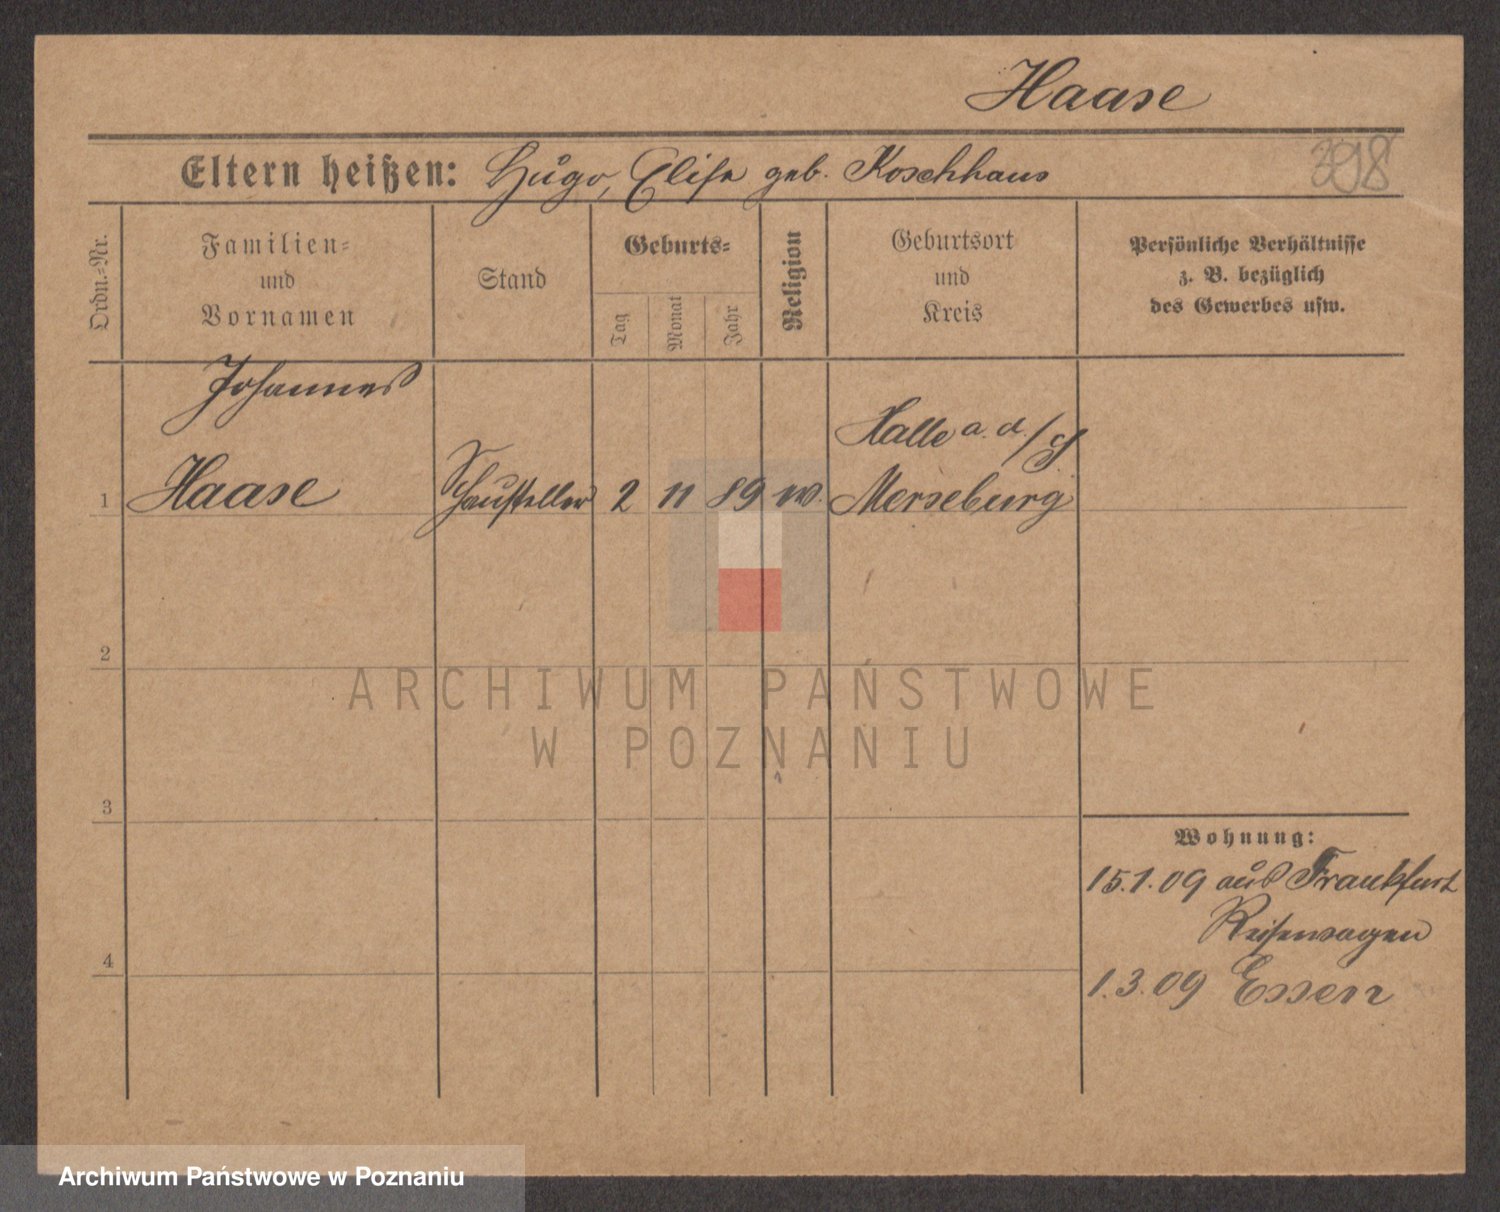 Haase
Eltern heißen: Hugo, Elise geb. Koschhaus
398
Ordn.=Nr.
Familien=
und
Vornamen
Stand
Geburts=
Tag
Monat
Jahr
Religion
Geburtsort
und
Kreis
Persönliche Verhältnisse
z. B. bezüglich
des Gewerbes usw.
Johannes
Halle a. d./S
1 Haase Schausteller 2 11 89 Merseburg
2
ARCHIWUM PAŃSTWOWE
W POZNANIU
3
Wohnung:
15.1.09 aus Frankfurt
Reisewagen
4
1.3.09 Essen
Archiwum Państwowe w Poznaniu